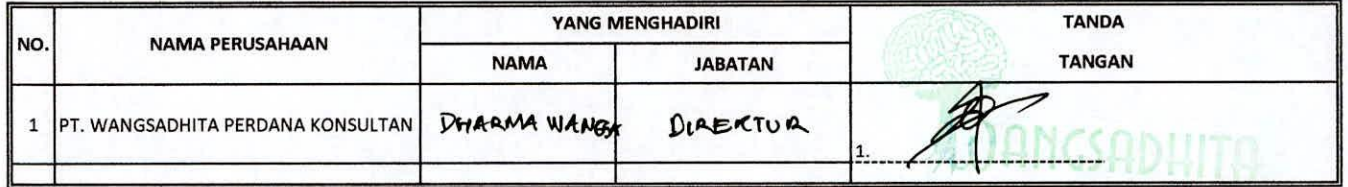 NO.
NAMA PERUSAHAAN
YANG MENGHADIRI
TANDA
TANGAN
NAMA
JABATAN
1 PT. WANGSADHITA PERDANA KONSULTAN DHARMA WANGSA DIREKTUR 1.
WANGSADHITA